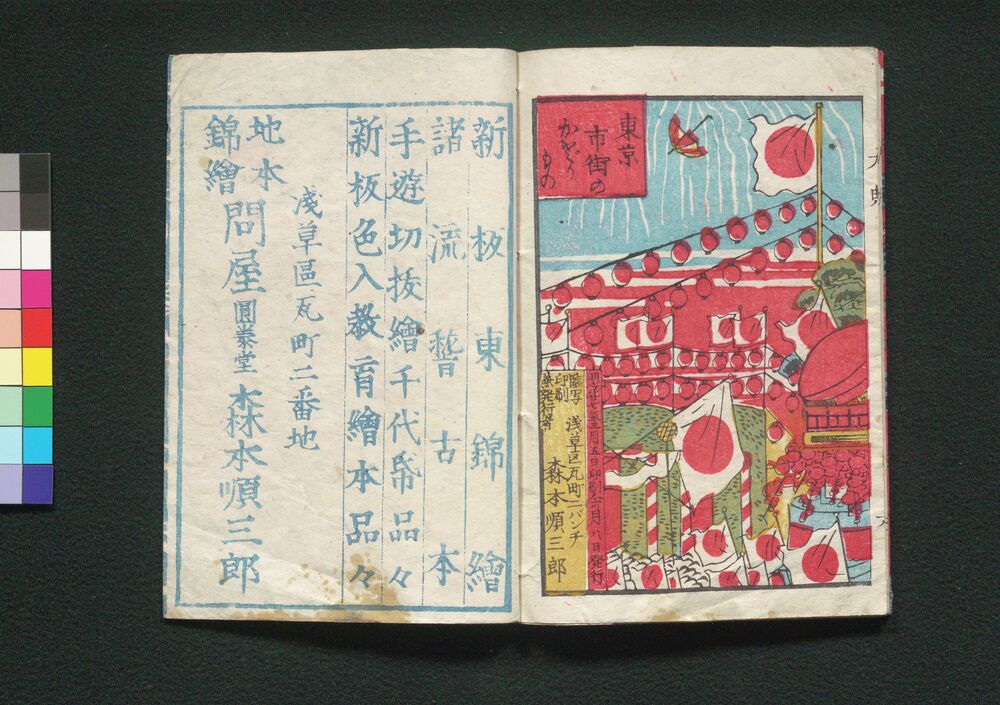 東京
市街の
かざり
もの
臨写
印刷
兼発行者
浅草区瓦町二バンチ
森本順三郎
新板東錦繪
諸流誓古本
手遊切抜繪千代帋品々
新板色入教育繪本品々
淺草區瓦町二番地
地本
錦繪
問屋
圓泰堂
森本順三郎